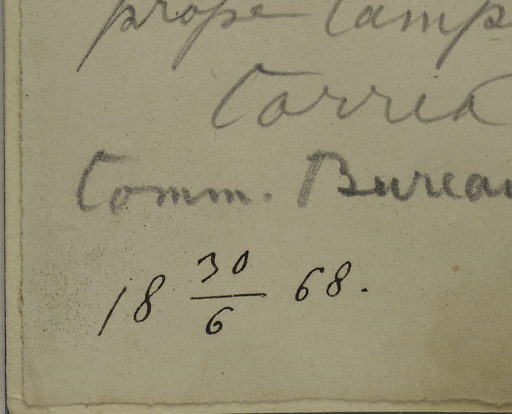 prope Camp
Correa
Comm. Bureau
18 30/6 68.